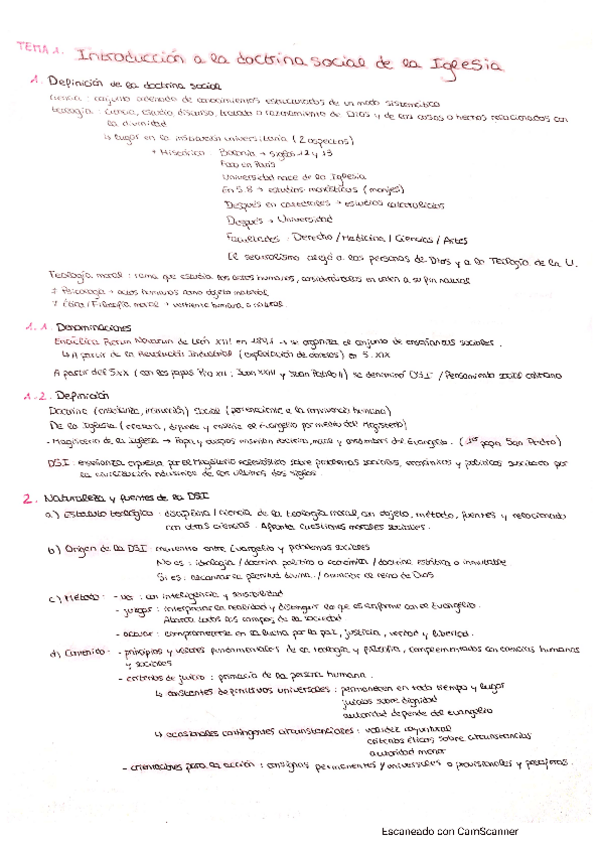 TEMA 1. Introducción a la doctrina social de la Iglesia
1. Definición de la doctrina social
Ciencia: conjunto ordenado de conocimientos estructurados de un modo sistemático
Teología: ciencia, estudio, discurso, tratado o razonamiento de Dios y de las cosas o hechos relacionados con
la divinidad
↳ Lugar en la institución universitaria (2 aspectos)
+ Histórico: Bolonia → siglos 12 y 13
Foco en París
Universidad nace de la Iglesia
En S.8 → estudios monásticos (monjes)
Después en catedrales → escuelas catedralicias
Después → Universidad
Facultades: Derecho / Medicina / Ciencias / Artes
El secularismo alejó a las personas de Dios y a la Teología de la U.
Teología moral: rama que estudia los actos humanos, considerándolos en orden a su fin natural
≠ Psicología → actos humanos como objeto material
≠ Ética / Filosofía moral → vertiente humana o natural.
1.1. Denominaciones
Encíclica Rerum Novarum de León XIII en 1891 → se organiza el conjunto de enseñanzas sociales.
↳ A partir de la Revolución Industrial (explotación de obreros) en S.XIX
A partir del S.XX (con los papas Pío XII, Juan XXIII y Juan Pablo II) se denominó DSI / Pensamiento social cristiano
1.2. Definición
Doctrina (enseñanza, instrucción) Social (perteneciente a la convivencia humana)
De la Iglesia (creatura, depende y enseña el Evangelio por medio del Magisterio)
- Magisterio de la Iglesia → Papa y obispos misión docente, moral y del Evangelio. (1er papa San Pedro)
DSI: enseñanza expuesta por el Magisterio eclesiástico sobre problemas sociales, económicos y políticos suscitado por
la civilización industrial de los últimos dos siglos
2. Naturaleza y fuentes de la DSI
a) Estatuto teológico: disciplina / ciencia de la teología moral, con objeto, método, fuentes y relacionado
con otras ciencias. Afronta cuestiones morales sociales.
b) Origen de la DSI: encuentro entre Evangelio y problemas sociales
No es: ideología / doctrina política o económica / doctrina estática o inmutable
Si es: alcanzar la plenitud divina / anunciar el reino de Dios
c) Método: - ver: con inteligencia y sensibilidad
- juzgar: interpretar la realidad y distinguir lo que es conforme con el Evangelio.
Abarca todos los campos de la sociedad
- actuar: comprometerse en la lucha por la paz, justicia, verdad y libertad.
d) Contenido: - principios y valores fundamentales de la teología y filosofía, complementados con ciencias humanas
y sociales
- criterios de juicio: primacía de la persona humana.
↳ constantes definitivos universales: permanecen en todo tiempo y lugar
juicios sobre dignidad
autoridad depende del evangelio
↳ ocasionales contingentes circunstanciales: validez coyuntural
criterios éticos sobre circunstancias
autoridad menor
- orientaciones para la acción: consignas permanentes y universales o provisionales y pasajeras.
Escaneado con CamScanner